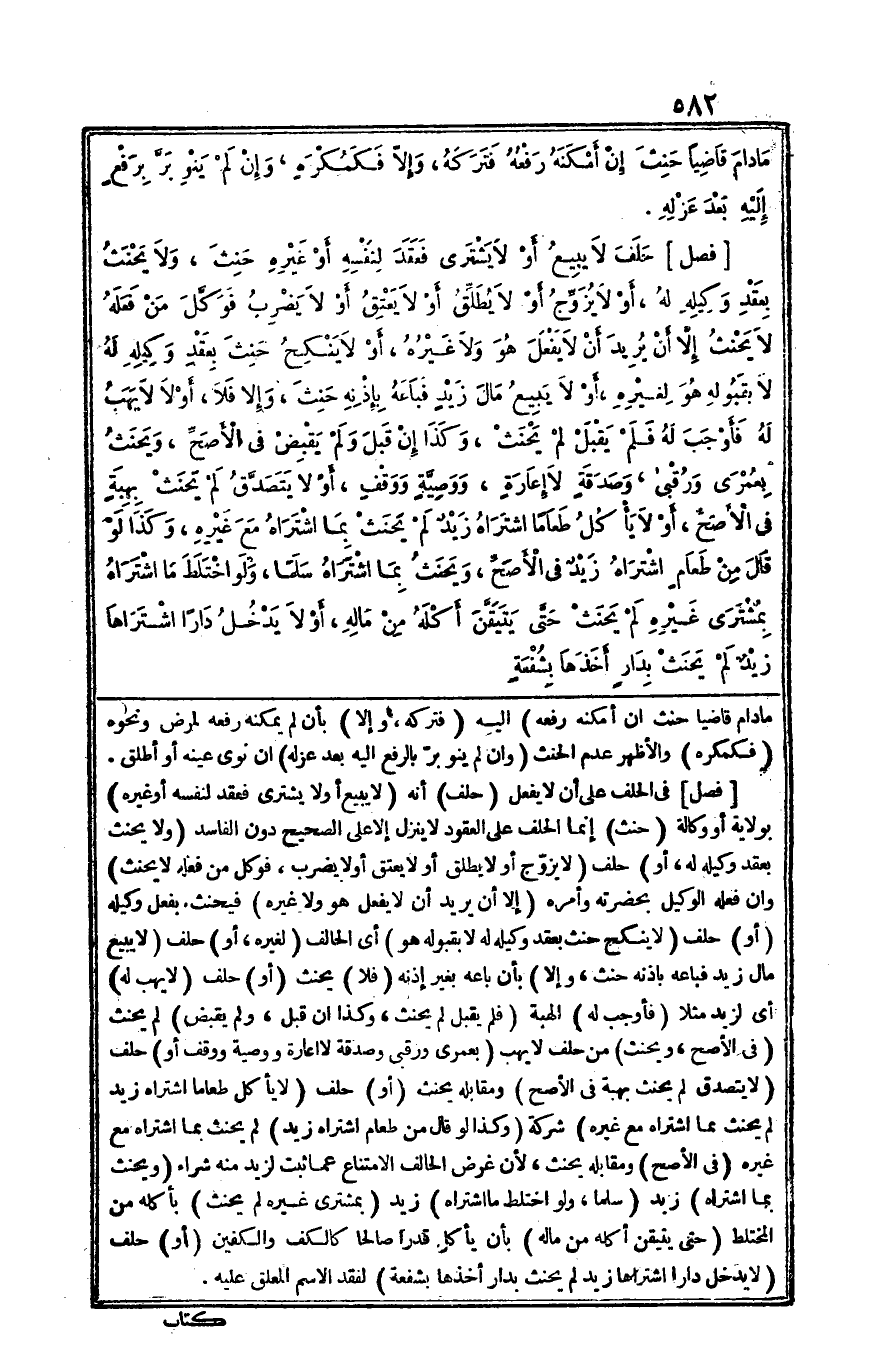 ٥٨٢
مَادَامَ قَاضِيًا حَنِثَ إِنْ أَمْكَنَهُ رَفْعُهُ فَتَرَكَهُ ، وَإِلاّ فَكَمُكْرَهٍ ، وَإِنْ لَمْ يَنْوِ بَرَّ بِرَفْعٍ
إِلَيْهِ بَعْدَ عَزْلِهِ .
[ فصل ] حَلَفَ لاَ يَبِيعُ أَوْ لاَيَشْتَرِى فَعَقَدَ لِنَفْسِهِ أَوْ غَيْرِهِ حَنِثَ ، وَلاَ يَحْنَثُ
بِعَقْدِ وَكِيلِهِ لَهُ ، أَوْ لاَيُزَوِّجُ أَوْ لاَيُطَلِّقُ أَوْ لاَيَعْتِقُ أَوْ لاَيَضْرِبُ فَوَكَّلَ مَنْ فَعَلَهُ
لاَ يَحْنَثُ إِلَّا أَنْ يُرِيدَ أَنْ لاَيَفْعَلَ هُوَ وَلاَ غَيْرُهُ ، أَوْ لاَيَنْكِحُ حَنِثَ بِعَقْدِ وَكِيلِهِ لَهُ
لاَ بِقَبُولِهِ هُوَ لِغَيْرِهِ ، أَوْ لاَ يَبِيعُ مَالَ زَيْدٍ فَبَاعَهُ بِإِذْنِهِ حَنِثَ ، وَإِلا فَلاَ ، أَوْلاَ لاَيَهَبُ
لَهُ فَأَوْجَبَ لَهُ فَلَمْ يَقْبَلْ لَمْ يَحْنَثْ ، وَكَذَا إِنْ قَبِلَ وَلَمْ يَقْبِضْ فى الْأَصَحِّ ، وَيَحْنَثُ
بِعُمْرَى وَرُقْبىٰ ، وَصَدَقَةٍ لاَإِعَارَةٍ ، وَوَصِيَّةٍ وَوَقْفٍ ، أَوْ لا يَتَصَدَّقُ لَمْ يَحْنَثْ بِهِبَةٍ
فى الْأَصَحِّ ، أَوْ لاَ يَأْكُلُ طَعَامًا اشْتَرَاهُ زَيْدٌ لَمْ يَحْنَثْ بِمَا اشْتَرَاهُ مَعَ غَيْرِهِ ، وَكَذَا لَوْ
قَالَ مِنْ طَعَامٍ اشْتَرَاهُ زَيْدٌ فى الْأَصَحِّ ، وَيَحْنَثُ بِمَا اشْتَرَاهُ سَلَمًا ، وَلَو اخْتَلَطَ مَا اشْتَرَاهُ
بِمُشْتَرَى غَيْرِهِ لَمْ يَحْنَثْ حَتَّى يَتَيَقَّنَ أَكْلَهُ مِنْ مَالِهِ ، أَوْ لاَ يَدْخُلُ دَارًا اشْتَرَاهَا
زَيْدٌ لَمْ يَحْنَثْ بِدَارٍ أَخَذَهَا بِشُفْعَةٍ
مادام قاضيا حنث ان أمكنه رفعه ) اليه ( فتركه ، وإلا ) بأن لم يمكنه رفعه لمرض ونحوه
( فكمكره ) والأظهر عدم الحنث ( وان لم ينو برّ بالرفع اليه بعد عزله) ان نوى عينه أو أطلق .
[ فصل ] فى الحلف على أن لايفعل ( حلف) أنه ( لايبيع أ ولا يشترى فعقد لنفسه أوغيره )
بولاية أو وكالة ( حنث) إنما الحلف على العقود لاينزل إلاعلى الصحيح دون الفاسد ( ولا يحنث
بعقد وكيله له ، أو ) حلف ( لايزوّج أو لايطلق أو لايعتق أولايضرب ، فوكل من فعله لايحنث )
وان فعله الوكيل بحضرته وأمره ( إلا أن يريد أن لايفعل هو ولا غيره ) فيحنث بفعل وكيله
( أو ) حلف ( لاينكح حنث بعقد وكيله له لا بقبوله هو ) أى الحالف ( لغيره ، أو ) حلف ( لايبيع
مال زيد فباعه باذنه حنث ، وإلا ) بأن باعه بغير إذنه ( فلا ) يحنث ( أو ) حلف ( لايهب له )
أى لزيد مثلا ( فأوجب له ) الهبة ( فلم يقبل لم يحنث ، وكذا ان قبل ، ولم يقبض ) لم يحنث
( فى الأصح ، ويحنث) من حلف لايهب ( بعمرى ورقبى وصدقة لااعارة ووصية ووقف أو ) حلف
( لايتصدق لم يحنث بهبة فى الأصح ) ومقابله يحنث ( أو ) حلف ( لايأكل طعاما اشتراه زيد
لم يحنث بما اشتراه مع غيره ) شركة ( وكذا لو قال من طعام اشتراه زيد ) لم يحنث بما اشتراه مع
غيره ( فى الأصح ) ومقابله يحنث ، لأن غرض الحالف الامتناع عما ثبت لزيد منه شراء ( ويحنث
بما اشتراه ) زيد ( سلما ، ولو اختلط مااشتراه ) زيد ( بمشترى غيره لم يحنث ) بأكله من
المختلط ( حتى يتيقن أكله من ماله ) بأن يأكل قدرا صالحا كالكف والكفين ( أو ) حلف
( لايدخل دارا اشتراها زيد لم يحنث بدار أخذها بشفعة ) لفقد الاسم المعلق عليه .
كتاب